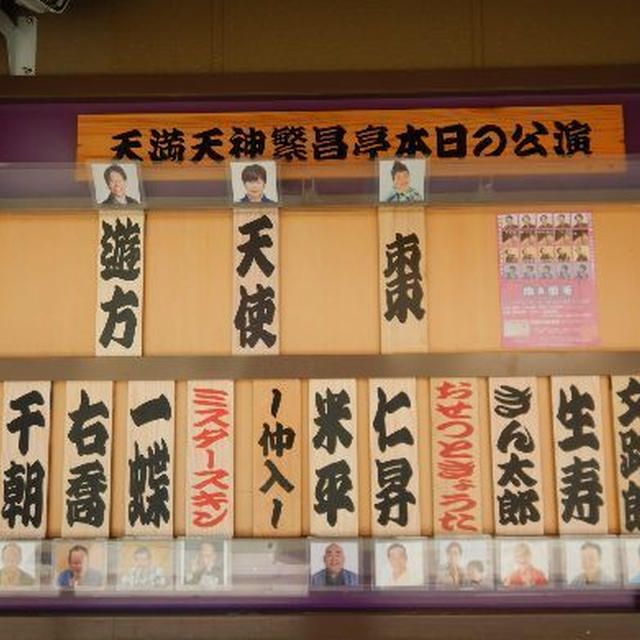 天満天神繁昌亭本日の公演
遊方
天使
棗
千朝
右喬
一蝶
ミスタースキン
ー仲入ー
米平
仁昇
おせつときょうた
きん太郎
生寿